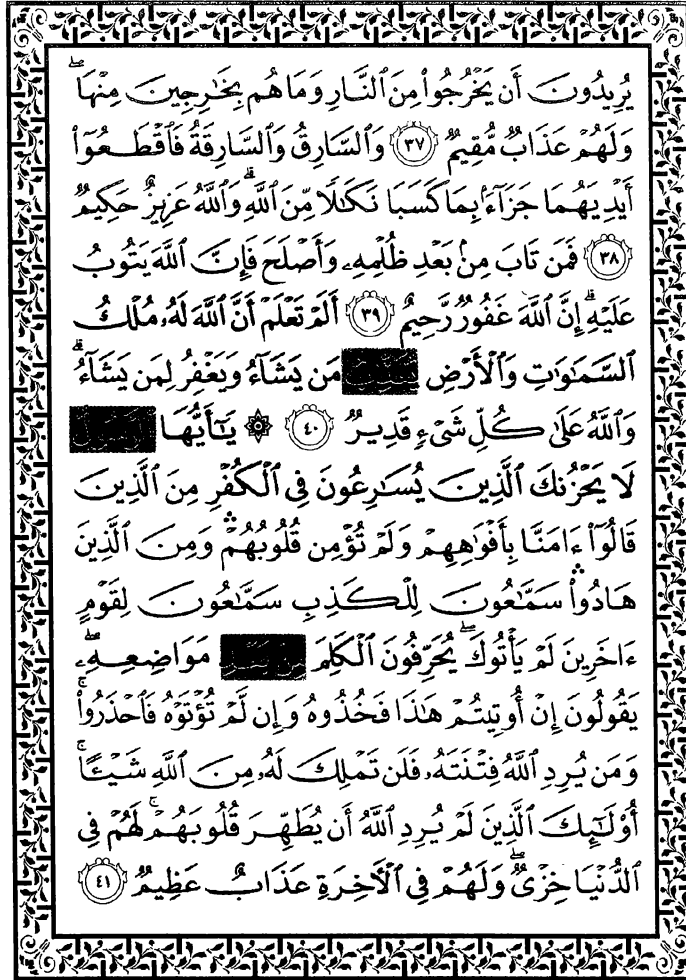 يُرِيدُونَ أَن يَخْرُجُوا۟ مِنَ ٱلنَّارِ وَمَا هُم بِخَـٰرِجِينَ مِنْهَا ۖ
وَلَهُمْ عَذَابٌ مُّقِيمٌ ٣٧ وَٱلسَّارِقُ وَٱلسَّارِقَةُ فَٱقْطَعُوٓا۟
أَيْدِيَهُمَا جَزَآءًۢ بِمَا كَسَبَا نَكَـٰلًا مِّنَ ٱللَّهِ ۗ وَٱللَّهُ عَزِيزٌ حَكِيمٌ
٣٨ فَمَن تَابَ مِنۢ بَعْدِ ظُلْمِهِۦ وَأَصْلَحَ فَإِنَّ ٱللَّهَ يَتُوبُ
عَلَيْهِ ۗ إِنَّ ٱللَّهَ غَفُورٌ رَّحِيمٌ ٣٩ أَلَمْ تَعْلَمْ أَنَّ ٱللَّهَ لَهُۥ مُلْكُ
ٱلسَّمَـٰوَٰتِ وَٱلْأَرْضِ مَن يَشَآءُ وَيَغْفِرُ لِمَن يَشَآءُ ۗ
وَٱللَّهُ عَلَىٰ كُلِّ شَىْءٍ قَدِيرٌ ٤٠ ۞ يَـٰٓأَيُّهَا
لَا يَحْزُنكَ ٱلَّذِينَ يُسَـٰرِعُونَ فِى ٱلْكُفْرِ مِنَ ٱلَّذِينَ
قَالُوٓا۟ ءَامَنَّا بِأَفْوَٰهِهِمْ وَلَمْ تُؤْمِن قُلُوبُهُمْ ۛ وَمِنَ ٱلَّذِينَ
هَادُوا۟ ۛ سَمَّـٰعُونَ لِلْكَذِبِ سَمَّـٰعُونَ لِقَوْمٍ
ءَاخَرِينَ لَمْ يَأْتُوكَ ۖ يُحَرِّفُونَ ٱلْكَلِمَ مَوَاضِعِهِۦ ۖ
يَقُولُونَ إِنْ أُوتِيتُمْ هَـٰذَا فَخُذُوهُ وَإِن لَّمْ تُؤْتَوْهُ فَٱحْذَرُوا۟ ۚ
وَمَن يُرِدِ ٱللَّهُ فِتْنَتَهُۥ فَلَن تَمْلِكَ لَهُۥ مِنَ ٱللَّهِ شَيْـًٔا ۚ
أُو۟لَـٰٓئِكَ ٱلَّذِينَ لَمْ يُرِدِ ٱللَّهُ أَن يُطَهِّرَ قُلُوبَهُمْ ۚ لَهُمْ فِى
ٱلدُّنْيَا خِزْىٌ ۖ وَلَهُمْ فِى ٱلْـَٔاخِرَةِ عَذَابٌ عَظِيمٌ ٤١